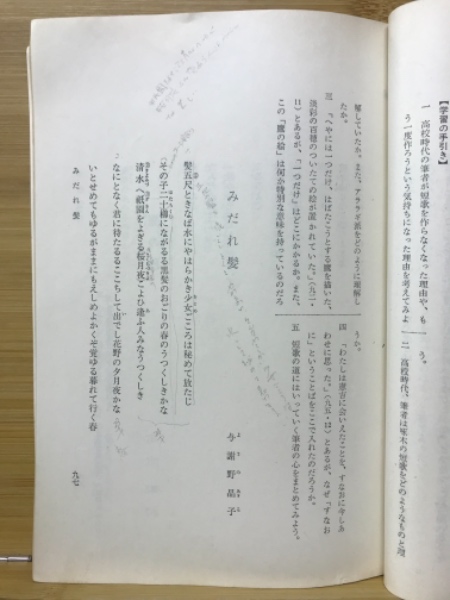 【学習の手引き】
一 高校時代の筆者が短歌を作らなくなった理由や、も
う一度作ろうという気持ちになった理由を考えてみよ
う。
二 高校時代、筆者は啄木の短歌をどのようなものと理
解していたか。また、アララギ派をどのように理解し
たか。
三 「へやには一つだけ、はばたこうとする鷹を描いた、
淡彩の百穂のついたての絵が置かれていた。」(九二・
11)とあるが、「一つだけ」はどこにかかるか。また、
この「鷹の絵」は何か特別な意味を持っているのだろ
うか。
四 「わたしは意吉に会えたことを、すなおに今しみ
わせに思った。」(九五・12)とあるが、なぜ「すなお
に」ということばをここで入れたのだろうか。
五 短歌の道にはいっていく筆者の心をまとめてみよう。
みだれ髪
与謝野晶子
髪五尺ときなば水にやはらかき少女ごころは秘めて放たじ
その子二十櫛にながるる黒髪のおごりの春のうつくしきかな
清水へ祇園をよぎる桜月夜こよひ逢ふ人みなうつくしき
なにとなく君に待たるるここちして出でし花野の夕月夜かな
いとせめてもゆるがままにもえしめよかくぞ覚ゆる暮れて行く春
みだれ髪
九七